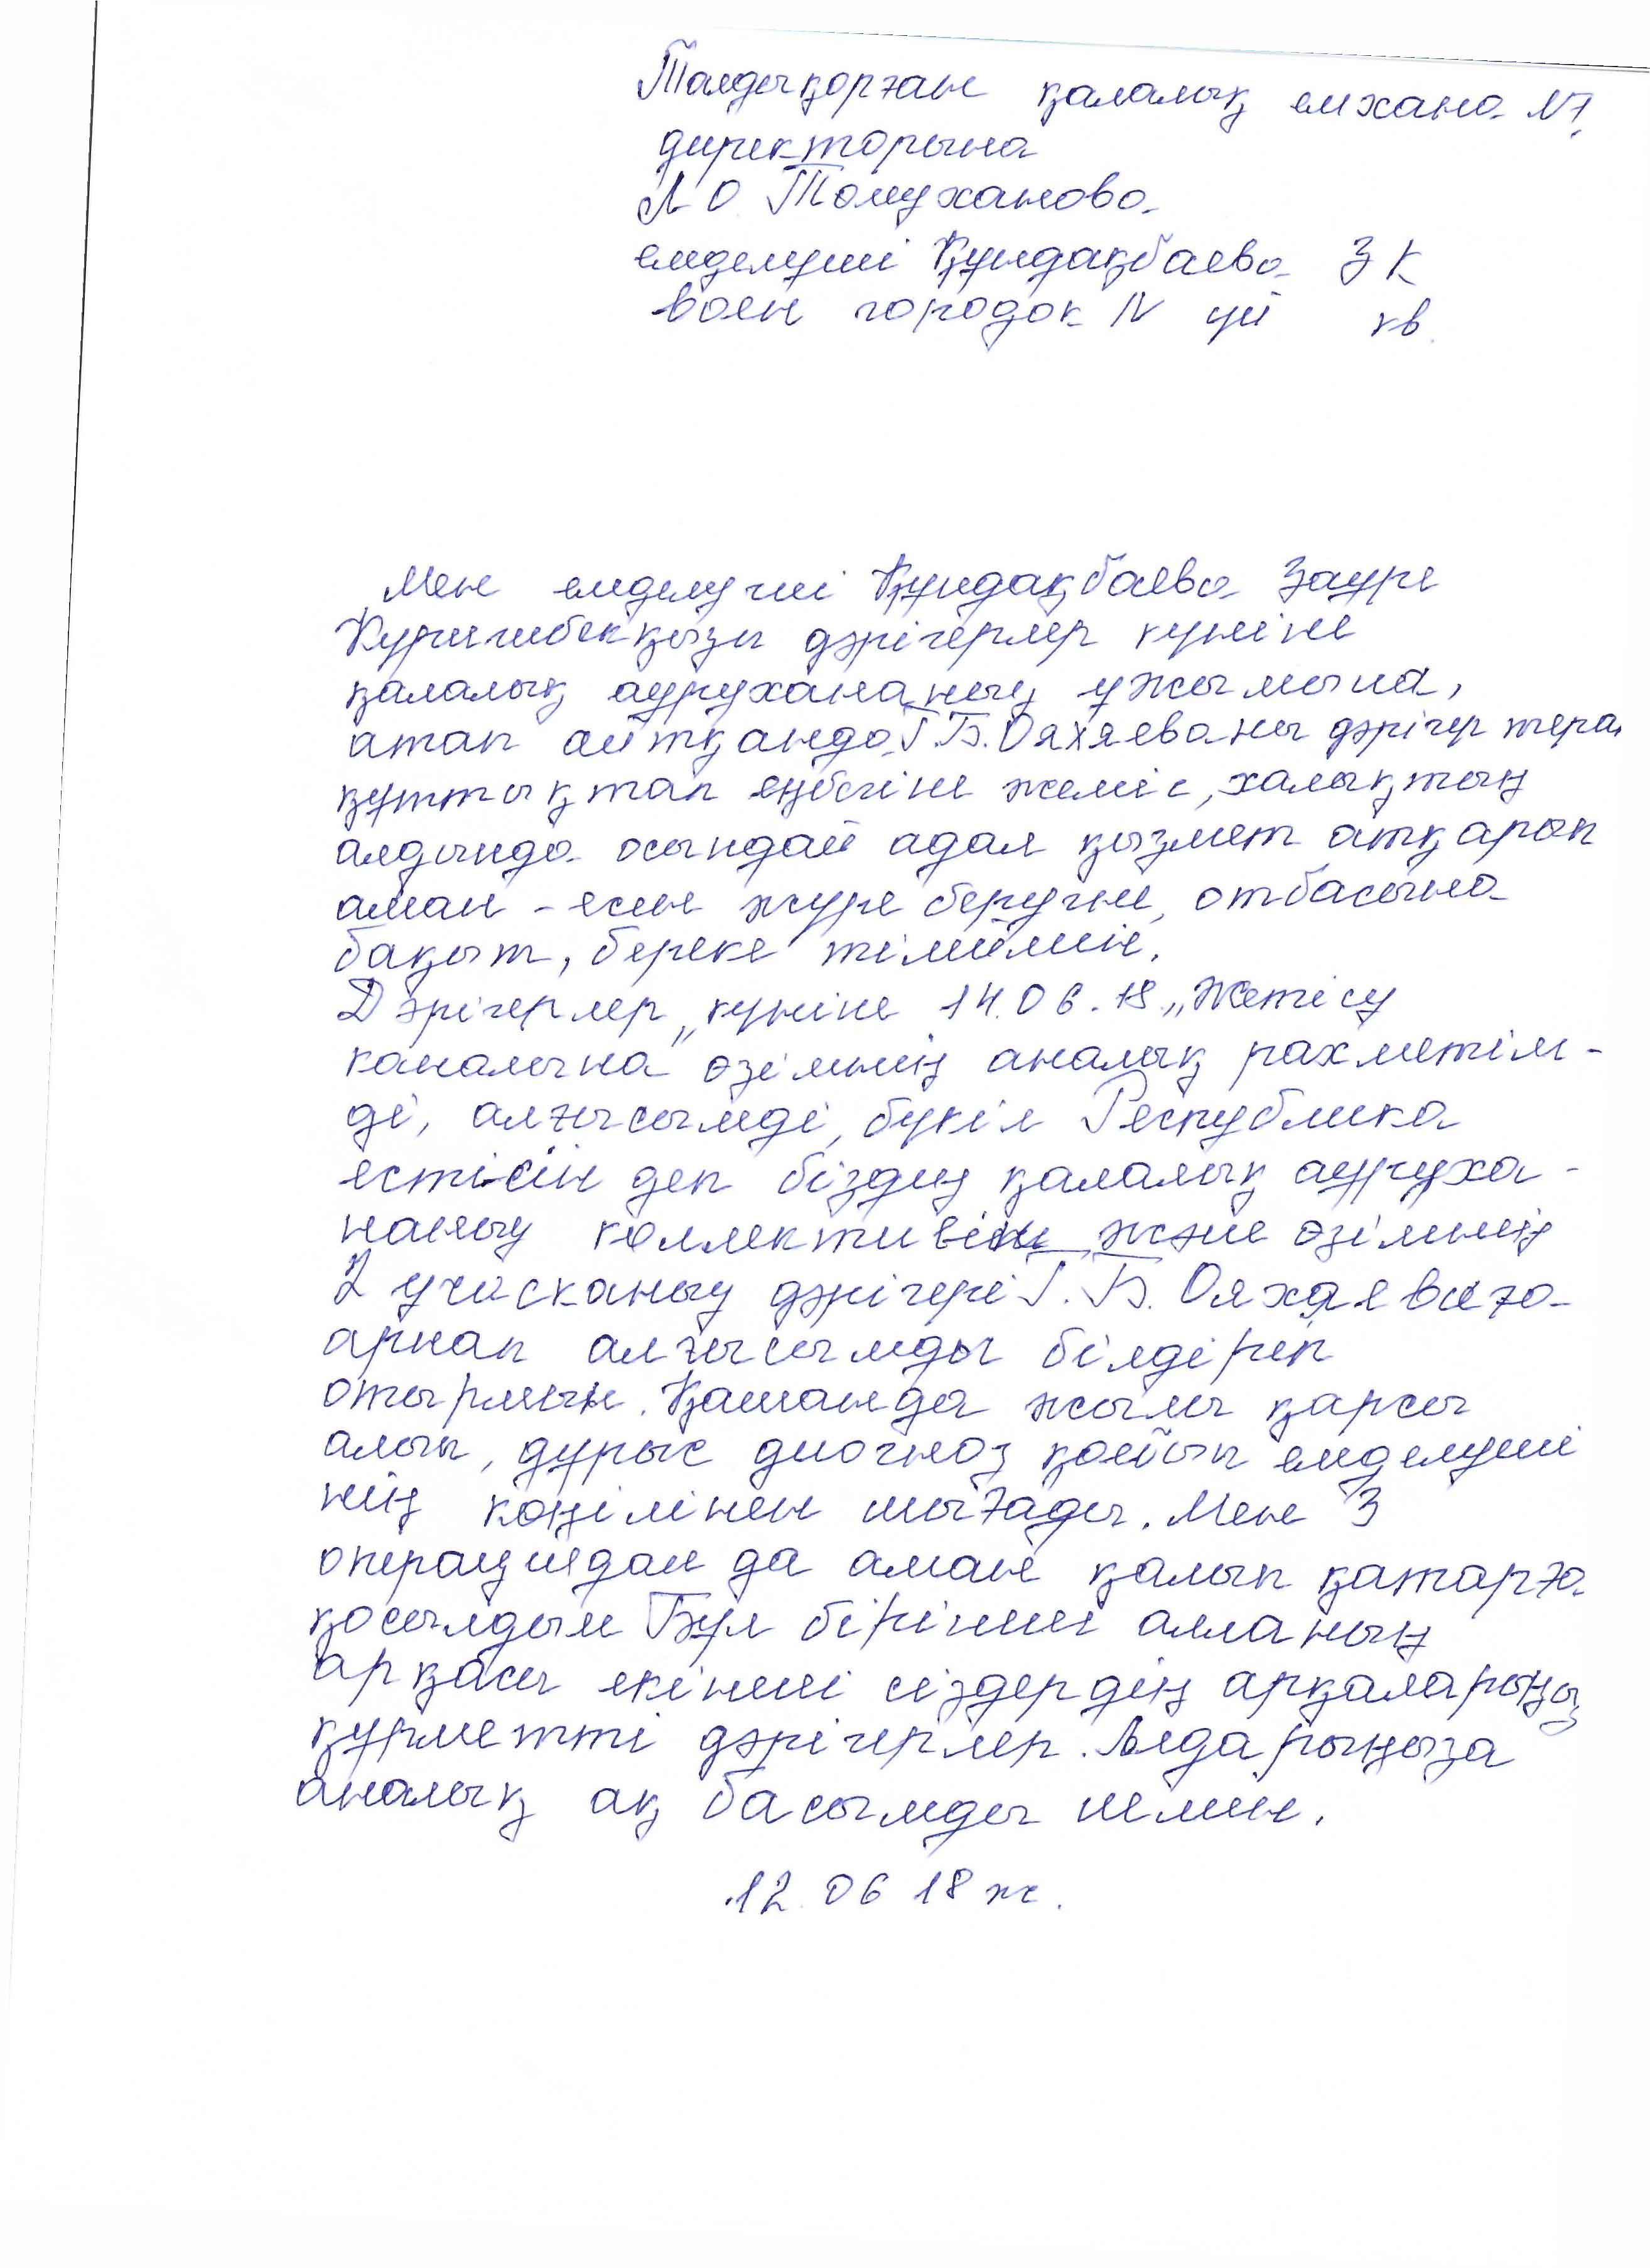 Талдықорған қалалық емхана №
директорына
Л О Томуханова
емделуші Құндақбаева З К
воен городок IV үй кв.
Мен емделуші Құндақбаева Зауре
дәрігерлер күніне
қалалық аурухананың ұжымына,
атап айтқанда Г.Б. Ояхяеваны дәрігер тера
құттықтап еңбегіне жеміс, халықтың
алдында осындай адал қызмет атқарып
аман-есен жүре беруіне, отбасына
бақыт, береке тілймін.
Дәрігерлер „күніне 14.06.18 „Жетісу
каналына" өзімнің аналық рахметім-
ді, алғысымді, бүкіл Республика
естісін деп біздің қалалық ауруха-
наның коллективін және өзімнің
2 учасканың дәрігері Г.Б. Ояхяеваға
арнап алғысымды білдіріп
отырмын. Қашанда жылы қарсы
алып, дұрыс диогноз қойып емделуші
нің көңілінен шығады. Мен 3
операциядан да аман қалып қатарға
қосылдым Бұл бірінші алланың
арқасы екінші сіздердің арқаларыңыз
құрметті дәрігерлер. Алдарыңыза
аналық ақ басымды иемін.
12.06 18 ж.